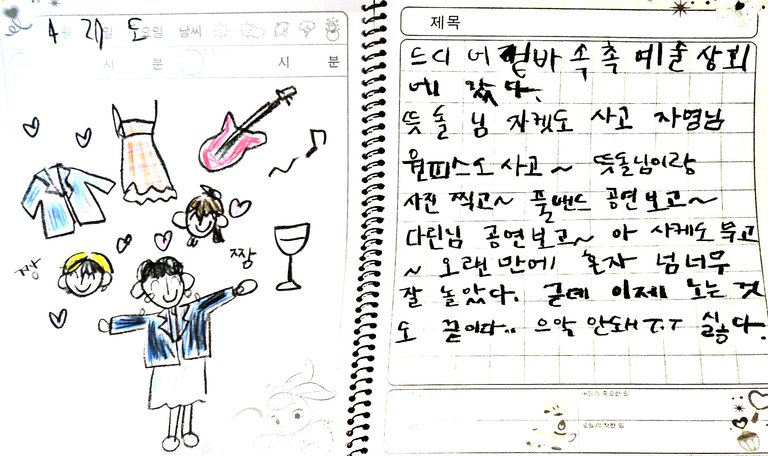 일 토요일 날씨
시 분 시 분
짱
짱
제목
드디어 텀바 속촉 예술상회
에 갔다.
뜻돌님 자켓도 사고 자영님
원피스도 사고~ 뜻돌님이랑
사진 찍고~ 풀밴드 공연보고~
다린님 공연보고~ 아 사케도 무고
~ 오랜만에 혼자 넘너무
잘 놀았다. 근데 이제 노는 것
도 끝이다.. 으악 안돼 T.T 싫다.
내일의 중요한 일
오늘의 착한 일